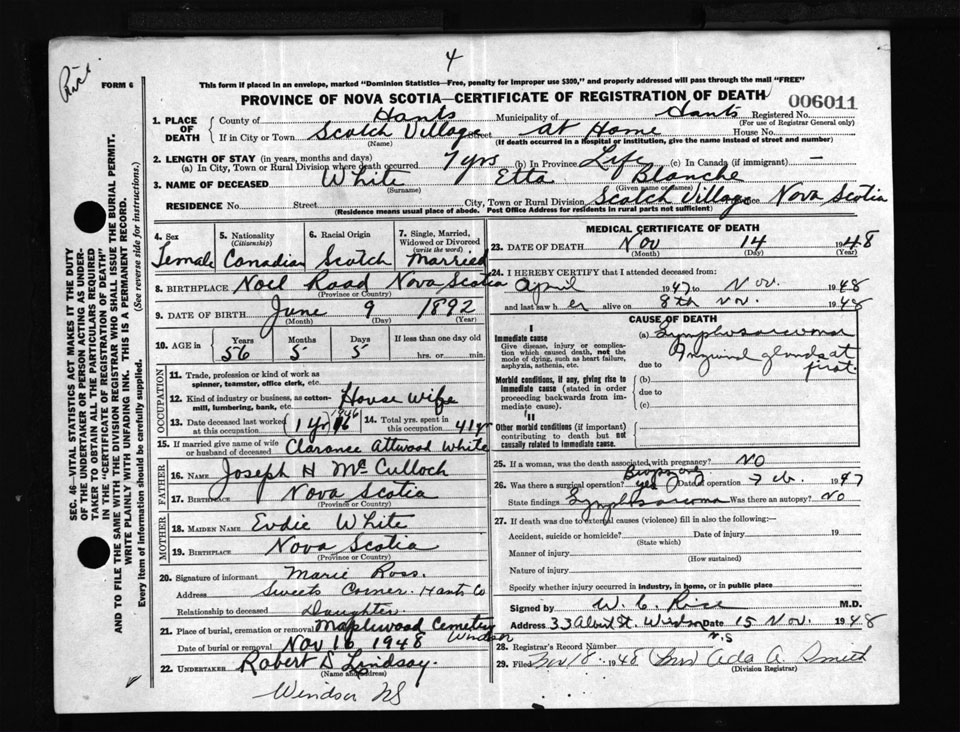 4
Rice.
FORM 6
This form if placed in an envelope, marked "Dominion Statistics—Free, penalty for improper use $300," and properly addressed will pass through the mail "FREE"
PROVINCE OF NOVA SCOTIA—CERTIFICATE OF REGISTRATION OF DEATH
006011
SEC. 46—VITAL STATISTICS ACT MAKES IT THE DUTY
OF THE UNDERTAKER OR PERSON ACTING AS UNDER-
TAKER TO OBTAIN ALL THE PARTICULARS REQUIRED
IN THE "CERTIFICATE OF REGISTRATION OF DEATH"
AND TO FILE THE SAME WITH THE DIVISION REGISTRAR WHO SHALL ISSUE THE BURIAL PERMIT.
WRITE PLAINLY WITH UNFADING INK. THIS IS A PERMANENT RECORD.
Every item of information should be carefully supplied. (See reverse side for instructions.)
1. PLACE OF DEATH County of Hants Municipality of Hants Registered No.
(For use of Registrar General only)
If in City or Town Scotch Village Street at Home House No.
(Name) (If death occurred in a hospital or institution, give the name instead of street and number)
2. LENGTH OF STAY (in years, months and days)
(a) In City, Town or Rural Division where death occurred 7 yrs (b) In Province Life (c) In Canada (if immigrant) —
3. NAME OF DECEASED White Etta Blanche
(Surname) (Given name or names)
RESIDENCE No. Street City, Town or Rural Division Scotch Village Province Nova Scotia
(Residence means usual place of abode. Post Office Address for residents in rural parts not sufficient)
4. Sex Female
5. Nationality (Citizenship) Canadian
6. Racial Origin Scotch
7. Single, Married, Widowed or Divorced (write the word) Married
8. BIRTHPLACE Noel Road Nova Scotia
(Province or Country)
9. DATE OF BIRTH June 9 1892
(Month) (Day) (Year)
10. AGE in Years 56 Months 5 Days 5 If less than one day old
hrs. or min.
OCCUPATION
11. Trade, profession or kind of work as
spinner, teamster, office clerk, etc.
12. Kind of industry or business, as cotton-
mill, lumbering, bank, etc. House wife
13. Date deceased last worked at this occupation 1 yr 1946
14. Total yrs. spent in this occupation 41 yr
15. If married give name of wife
or husband of deceased Clarence Attwood White
FATHER
16. NAME Joseph H McCulloch
17. BIRTHPLACE Nova Scotia
(Province or Country)
MOTHER
18. MAIDEN NAME Evdie White
19. BIRTHPLACE Nova Scotia
(Province or Country)
20. Signature of informant Marie Ross.
Address Sweets Corner. Hants Co
Relationship to deceased Daughter.
21. Place of burial, cremation or removal Maplewood Cemetery Windsor
Date of burial or removal Nov 16 1948
22. UNDERTAKER Robert S Lindsay.
(Name and address)
Windsor NS
MEDICAL CERTIFICATE OF DEATH
23. DATE OF DEATH Nov 14 1948
(Month) (Day) (Year)
24. I HEREBY CERTIFY that I attended deceased from:
April 1947 to Nov. 1948
and last saw her alive on 8th Nov. 1948
CAUSE OF DEATH
I
Immediate cause
Give disease, injury or complica-
tion which caused death, not the
mode of dying, such as heart failure,
asphyxia, asthenia, etc.
(a) Lymphosarcoma
Inguinal glands at
due to first.
Morbid conditions, if any, giving rise to
immediate cause (stated in order
proceeding backwards from im-
mediate cause).
(b)
due to
(c)
II
Other morbid conditions (if important)
contributing to death but not
causally related to immediate cause.
25. If a woman, was the death associated with pregnancy? NO
26. Was there a surgical operation? Biopsy only yes Date of operation Feb. 1947
State findings Lymphosarcoma Was there an autopsy? NO
27. If death was due to external causes (violence) fill in also the following:—
Accident, suicide or homicide? Date of injury 19
(State which)
Manner of injury
(How sustained)
Nature of injury
Specify whether injury occurred in industry, in home, or in public place
Signed by W. C. Rice M.D.
Address 33 Albert St. Windsor N.S Date 15 Nov. 1948
28. Registrar's Record Number
29. Filed Nov 18 1948 (Mrs) Ada A. Smith
(Division Registrar)